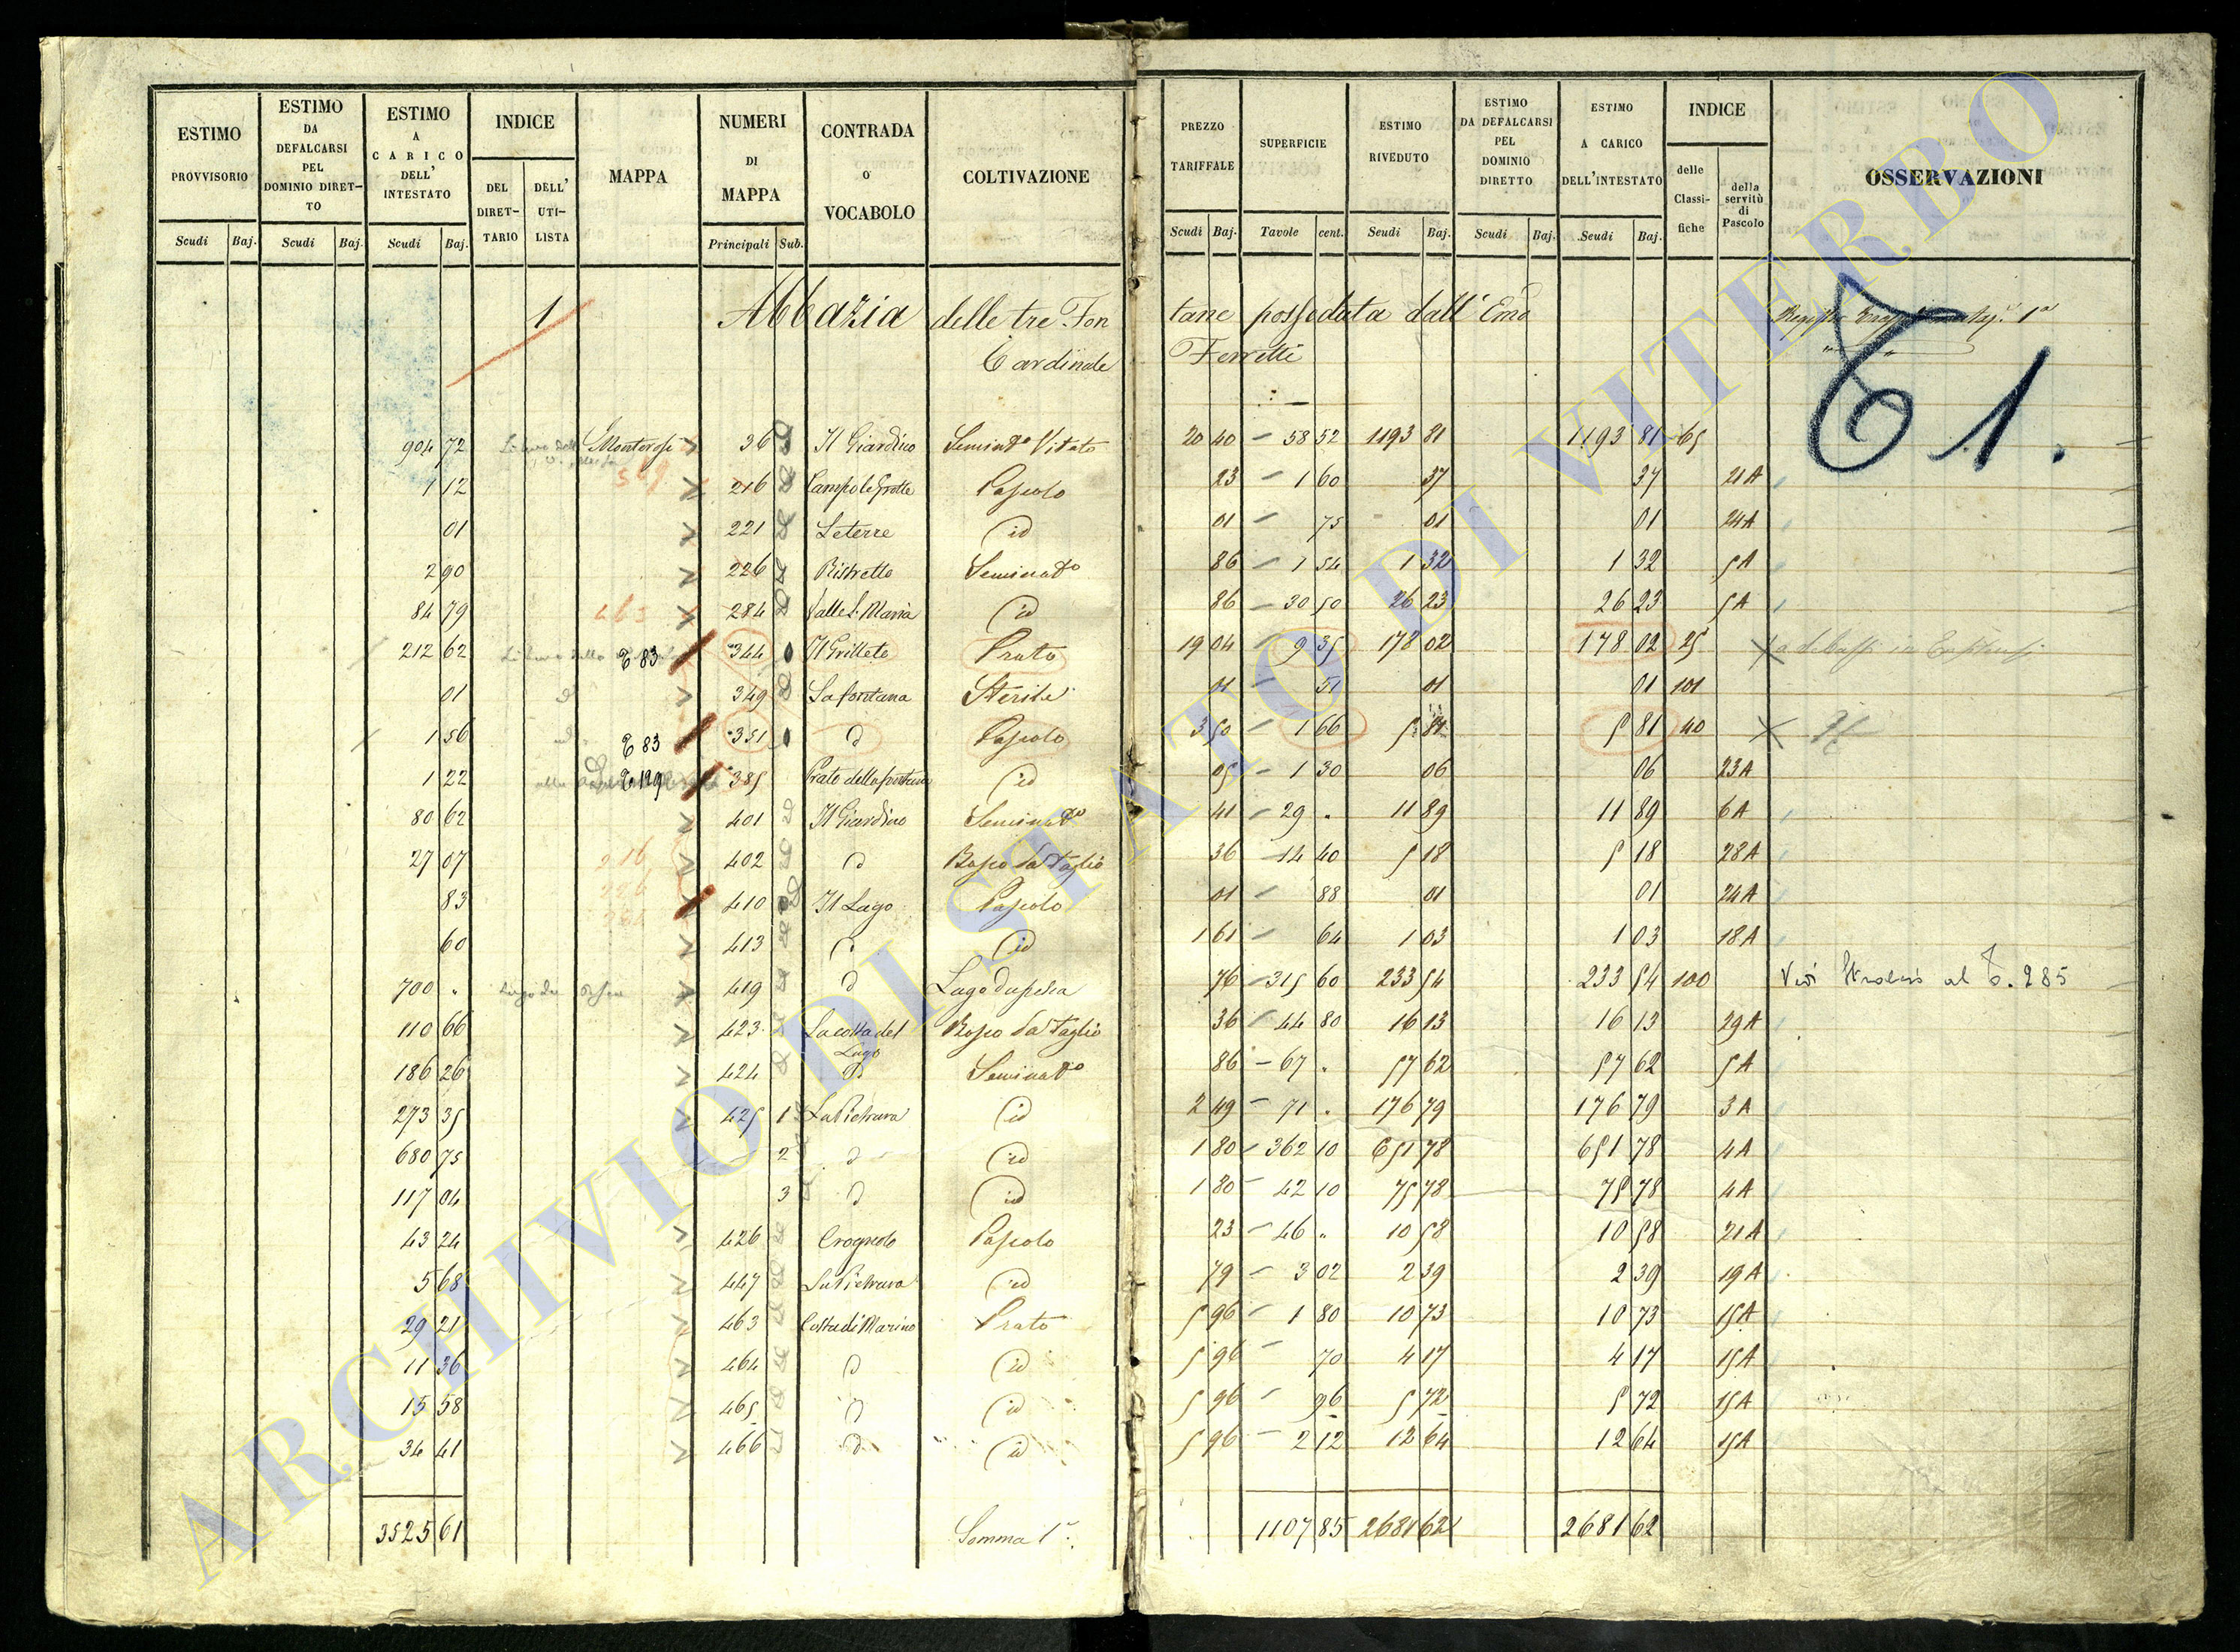 ESTIMO PROVVISORIO Scudi Baj.
ESTIMO DA DEFALCARSI PEL DOMINIO DIRET- TO Scudi Baj.
ESTIMO A CARICO DELL' INTESTATO Scudi Baj.
INDICE DEL DIRET- TARIO DELL' UTI- LISTA
MAPPA
NUMERI DI MAPPA Principali Sub.
CONTRADA O VOCABOLO
COLTIVAZIONE
PREZZO TARIFFALE Scudi Baj.
SUPERFICIE Tavole cent.
ESTIMO RIVEDUTO Scudi Baj.
ESTIMO DA DEFALCARSI PEL DOMINIO DIRETTO Scudi Baj.
ESTIMO A CARICO DELL'INTESTATO Scudi Baj.
INDICE delle Classi- fiche della servitù di Pascolo
OSSERVAZIONI
1 Abbazia delle tre Fon tane posseduta dall' Emo
Cardinale Ferretti
T 1.
904 72 Monterosi 36 Il Giardino Seminto Vitato 20 40 58 52 1193 81 1193 81 65
1 12 216 Campo le Grotte Pascolo 23 1 60 37 37 21A
01 221 Le terre id 01 75 01 01 24A
2 90 226 Ristretto Seminato 86 1 54 1 32 1 32 5A
84 79 284 Valle S. Maria id 86 30 50 26 23 26 23 5A
212 62 T 83 344 Il Grilleto Prato 19 04 9 35 178 02 178 02 25
01 349 La fontana Sterile 01 51 01 01 101
1 56 T 83 351 d Pascolo 3 50 1 66 5 81 5 81 40
1 22 T 129 385 Prato della fontana id 05 1 30 06 06 23A
80 62 401 Il Giardino Seminato 41 29 " 11 89 11 89 6A
27 07 402 d Bosco da Taglio 36 14 40 5 18 5 18 28A
83 410 Il Lago Pascolo 01 88 01 01 24A
60 413 d id 1 61 64 1 03 1 03 18A
700 " 419 d Lago da pesca 76 315 60 233 54 233 54 100 Vedi al T. 285
110 66 423 La costa del Lago Bosco da Taglio 36 44 80 16 13 16 13 29A
186 26 424 d Seminato 86 67 " 57 62 57 62 5A
273 35 425 1 La Pietrara id 2 49 71 " 176 79 176 79 3A
680 75 2 d id 1 80 362 10 651 78 651 78 4A
117 04 3 d id 1 80 42 10 75 78 75 78 4A
43 24 426 Crognolo Pascolo 23 46 " 10 58 10 58 21A
5 68 447 La Pietrara id 79 3 02 2 39 2 39 19A
29 21 463 Costa di Marino Prato 5 96 1 80 10 73 10 73 15A
11 36 464 d id 5 96 70 4 17 4 17 15A
15 58 465 d id 5 96 96 5 72 5 72 15A
34 41 466 d id 5 96 2 12 12 64 12 64 15A
3525 61 Somma 1a 1107 85 2681 62 2681 62
ARCHIVIO DI STATO DI VITERBO